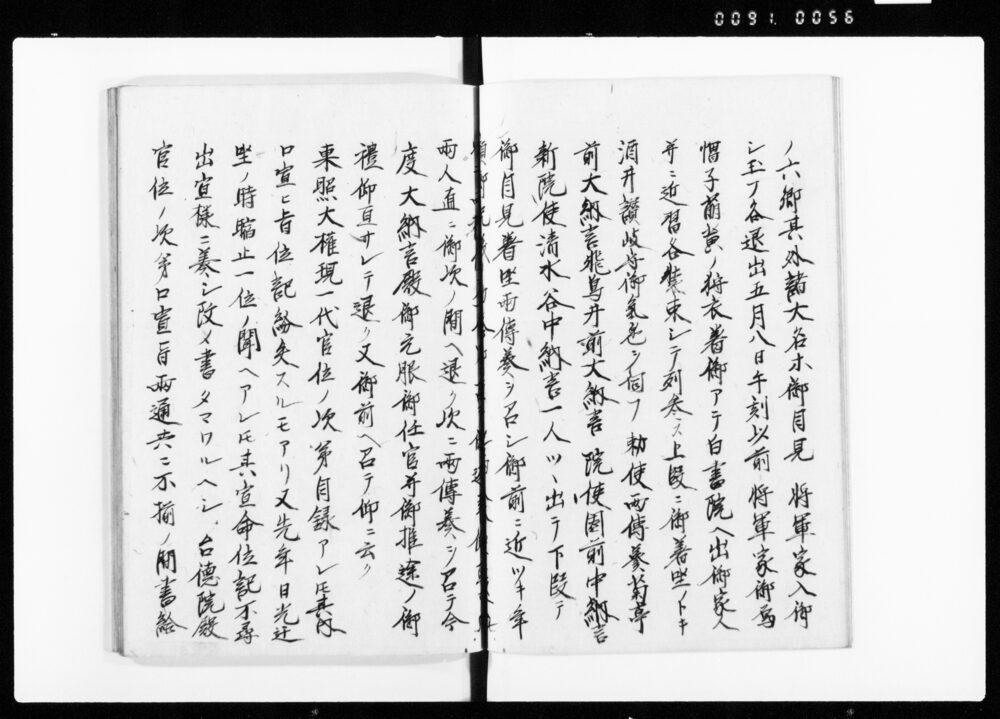 0091. 0056
ノ六郷其外諸大名ホ御目見 将軍家入御
シ玉フ各退出五月八日午刻以前 将軍家御烏
帽子萠黄ノ狩衣着御アテ白書院ヘ出御家人
并ニ近習各装束シテ列参ス上段ニ御着坐ノトキ
酒井讃岐守御氣色ヲ伺フ 勅使両傳奏菊亭
前大納言飛鳥井前大納言 院使園前中納言
新院使清水谷中納言一人ツヽ出テ下段テ
御目見着坐両傳奏ヲ召シ御前ニ近ツキ年
両人直ニ御次ノ間ヘ退ク次ニ両傳奏ヲ召テ今
度大納言殿御元服御任官并御推叙ノ御
禮仰亘サレテ退ク又御前ヘ召テ仰ニ云ク
東照大権現一代官位ノ次第目録アレ𪜈其内
口宣ヒ旨位記紛失スルモアリ又先年日光迁
坐ノ時贈正一位ノ聞ヘアレ𪜈其宣命位記不尋
出宣様ニ奏シ改メ書タマワルヘシ 台德院殿
官位ノ次第口宣旨両通共ニ不揃ノ間書給